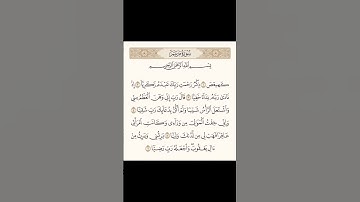 سُورَةُ مَرْيَمَ
بِسْمِ ٱللَّهِ ٱلرَّحْمَٰنِ ٱلرَّحِيمِ
كٓهيعٓصٓ ١ ذِكْرُ رَحْمَتِ رَبِّكَ عَبْدَهُۥ زَكَرِيَّآ ٢ إِذْ
نَادَىٰ رَبَّهُۥ نِدَآءً خَفِيًّا ٣ قَالَ رَبِّ إِنِّي وَهَنَ ٱلْعَظْمُ مِنِّي
وَٱشْتَعَلَ ٱلرَّأْسُ شَيْبًا وَلَمْ أَكُنۢ بِدُعَآئِكَ رَبِّ شَقِيًّا ٤
وَإِنِّي خِفْتُ ٱلْمَوَٰلِيَ مِن وَرَآءِي وَكَانَتِ ٱمْرَأَتِي
عَاقِرًا فَهَبْ لِي مِن لَّدُنكَ وَلِيًّا ٥ يَرِثُنِي وَيَرِثُ مِنْ
ءَالِ يَعْقُوبَ وَٱجْعَلْهُ رَبِّ رَضِيًّا ٦